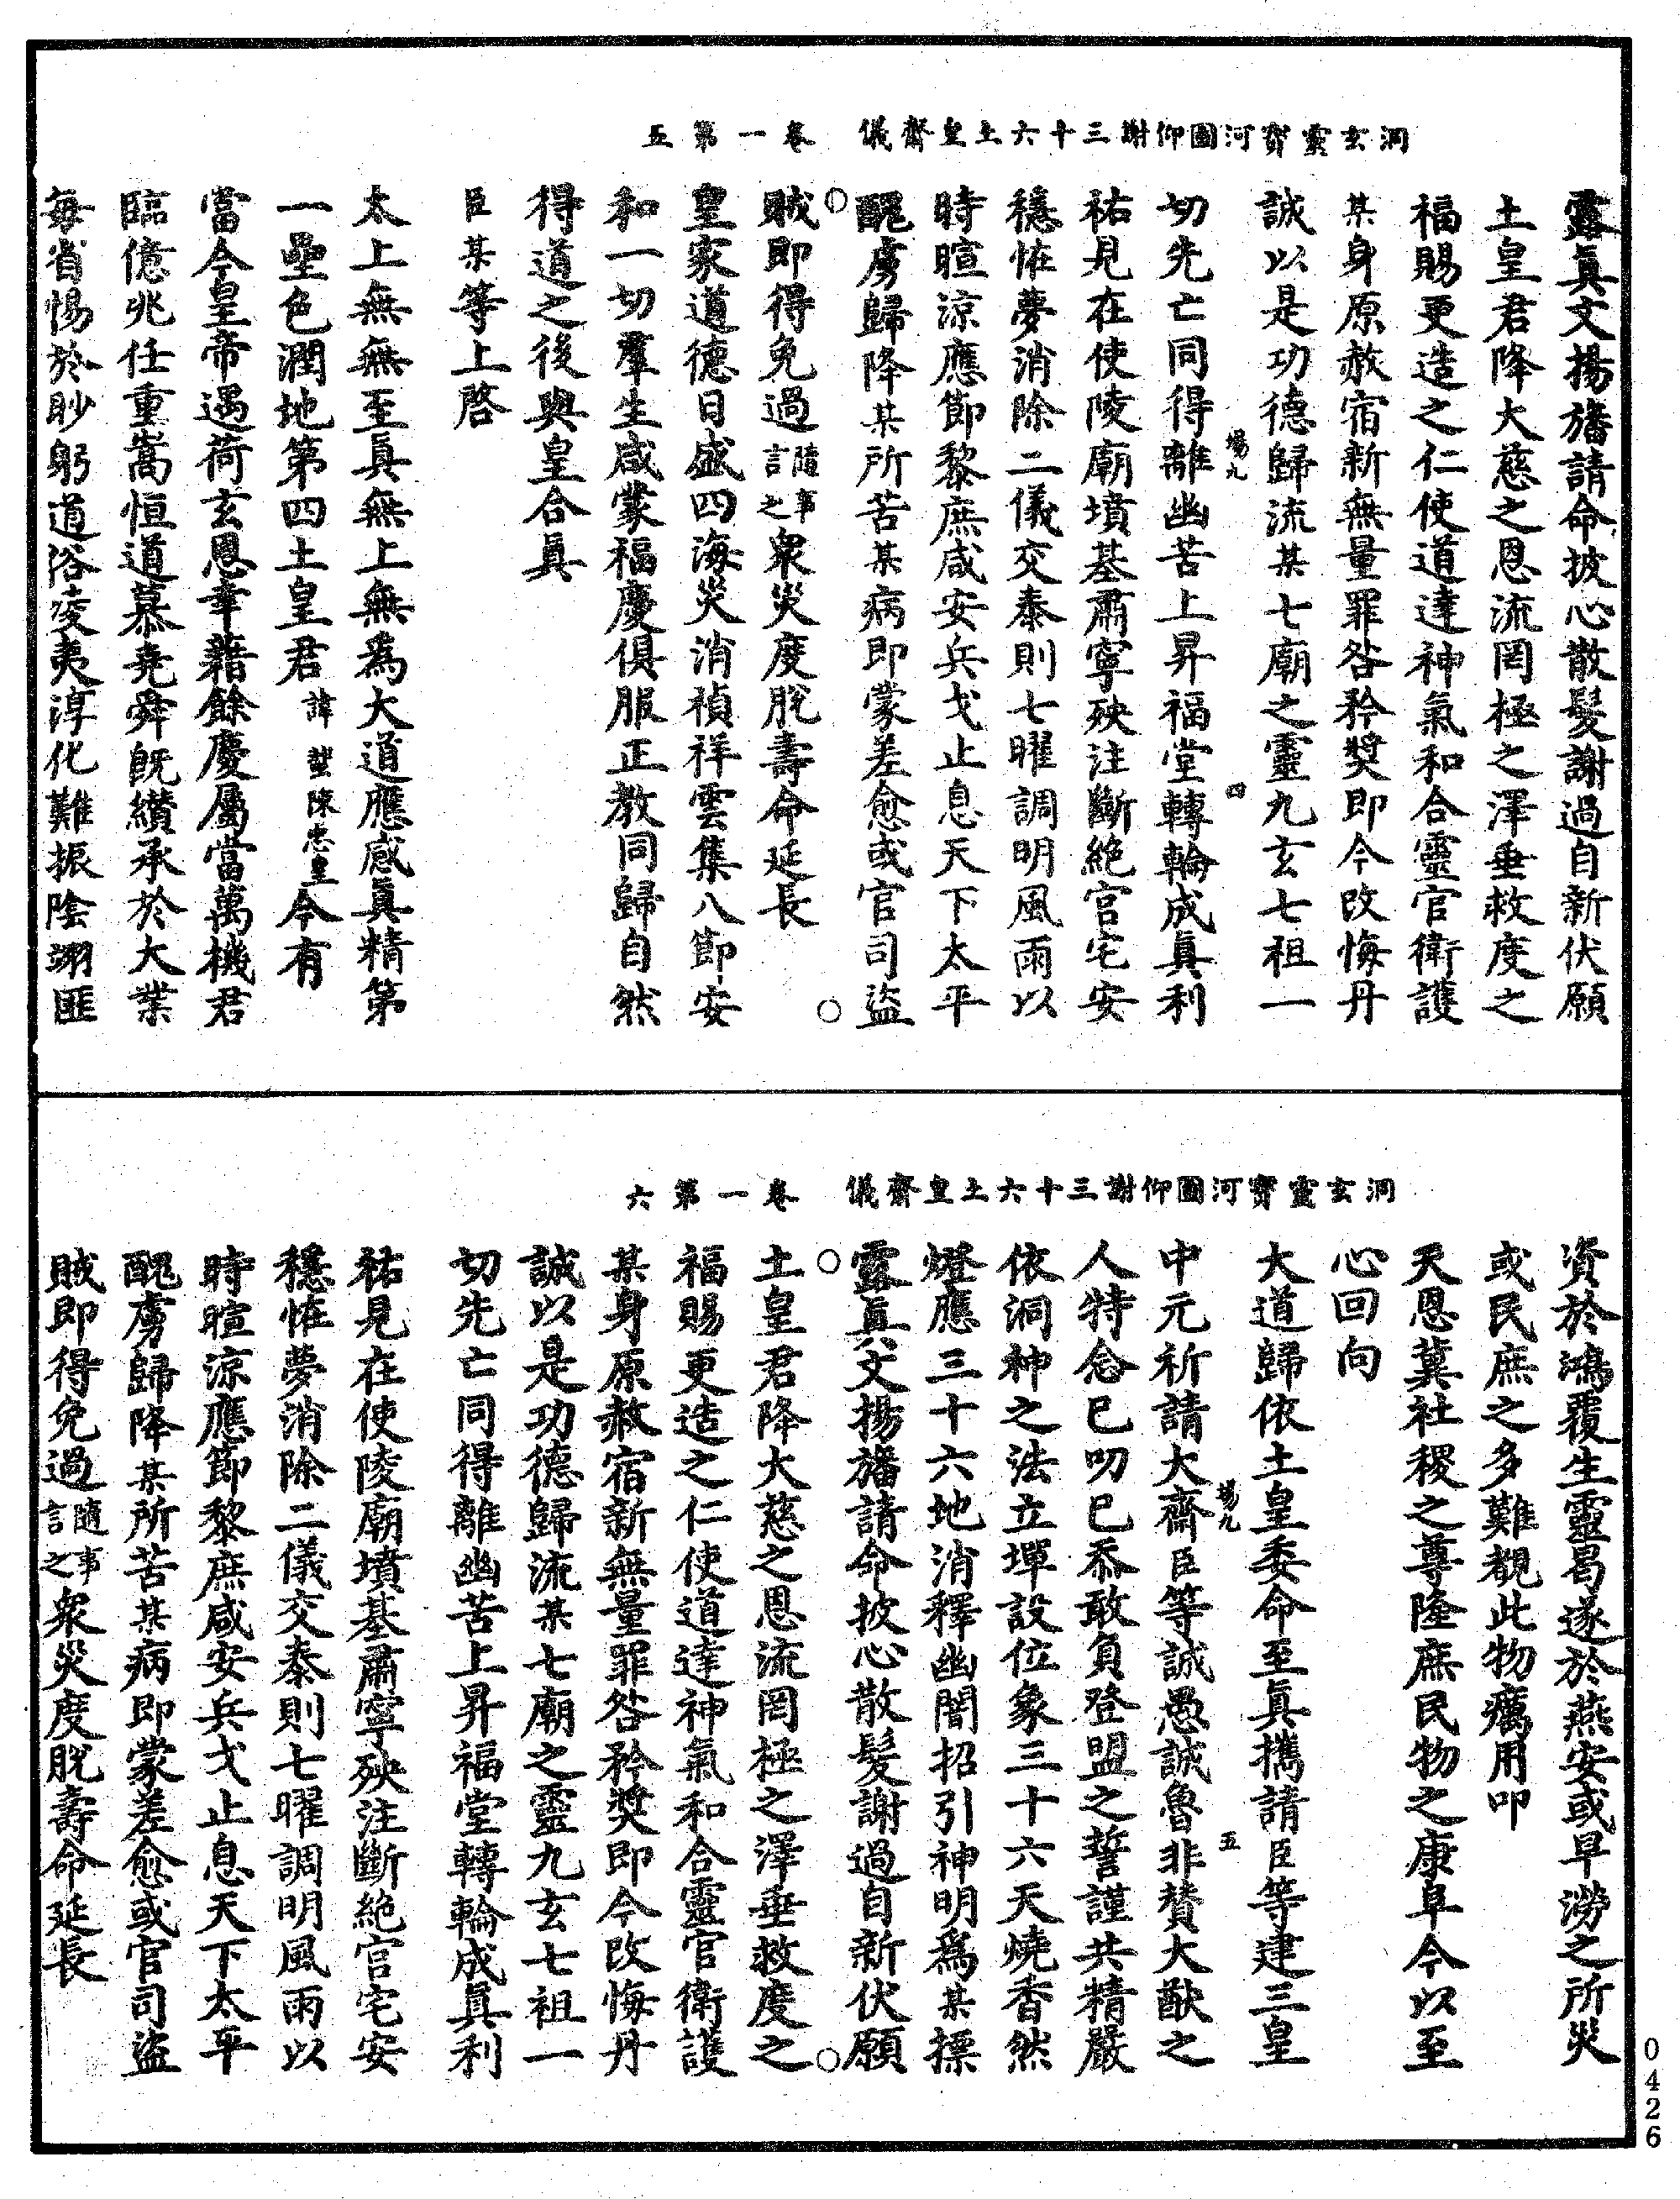 洞玄靈寶河圖仰謝三十六土皇齋儀　卷一第五
露真文揚旛請命披心散髮謝過自新伏願
土皇君降大慈之恩流罔極之澤垂救度之
福賜更造之仁使道達神氣和合靈官衛護
某身原赦宿新無量罪咎矜奨即今改悔丹
誠以是功德歸流某七廟之靈九玄七祖一
場九　四
切先亡同得離幽苦上昇福堂轉輪成真利
祐見在使陵廟墳基肅寧殃注斷絕宫宅安
穩恠夢消除二儀交泰則七曜調明風雨以
時暄涼應節黎庶咸安兵戈止息天下太平
醜虜歸降某所苦某病即蒙差愈或官司盜
賊即得免過隨事言之衆災度脫壽命延長
皇家道德日盛四海災消禎祥雲集八節安
和一切羣生咸蒙福慶俱服正教同歸自然
得道之後與皇合真
臣某等上啓
太上無無至真無上無為大道應感真精第
一壘色潤地第四土皇君諱蜚陳忠皇今有
當今皇帝遇荷玄恩幸藉餘慶屬當萬機君
臨億兆任重嵩恒道慕堯舜既纘承於大業
每省惕於眇躬道俗陵夷淳化難振陰翊匪
洞玄靈寶河圖仰謝三十六土皇齋儀　卷一第六
資於鴻覆生靈曷遂於燕安或旱澇之所災
或民庶之多難覩此物癘用叩
天恩冀社稷之尊隆庶民物之康阜今以至
心回向
大道歸依土皇委命至真攜請臣等建三皇
場九　五
中元祈請大齋臣等誠愚誠魯非贊大猷之
人特念已叨已忝敢負登盟之誓謹共精嚴
依洞神之法立墠設位象三十六天燒香然
燈應三十六地消釋幽闇招引神明為某摽
露真八文揚旛請命披心散髮謝過自新伏願
土皇君降大慈之恩流罔極之澤垂救度之
福賜更造之仁使道達神氣和合靈官衛護
某身原赦宿新無量罪咎矜奨即今改悔丹
誠以是功德歸流某七廟之靈九玄七祖一
切先亡同得離幽苦上昇福堂轉輪成真利
祐見在使陵廟墳基肅寧殃注斷絕宫宅安
穩恠夢消除二儀交泰則七曜調明風雨以
時暄涼應節黎庶咸安兵戈止息天下太平
醜虜歸降某所苦某病即蒙差愈或官司盜
賊即得免過隨事言之衆災度脫壽命延長
0426